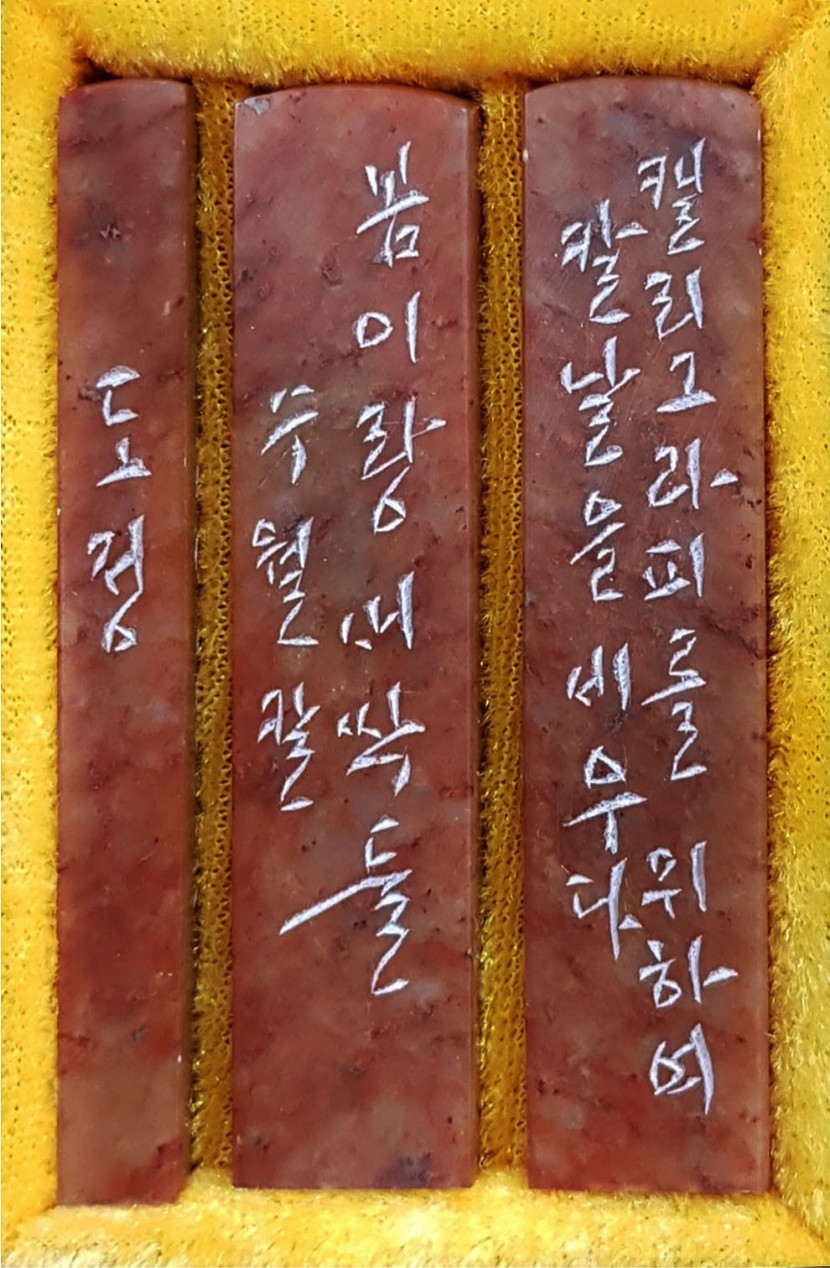 캘리그라피를 위하여
칼날을 세우다
봄이랑 새싹들
수월 칼
도정